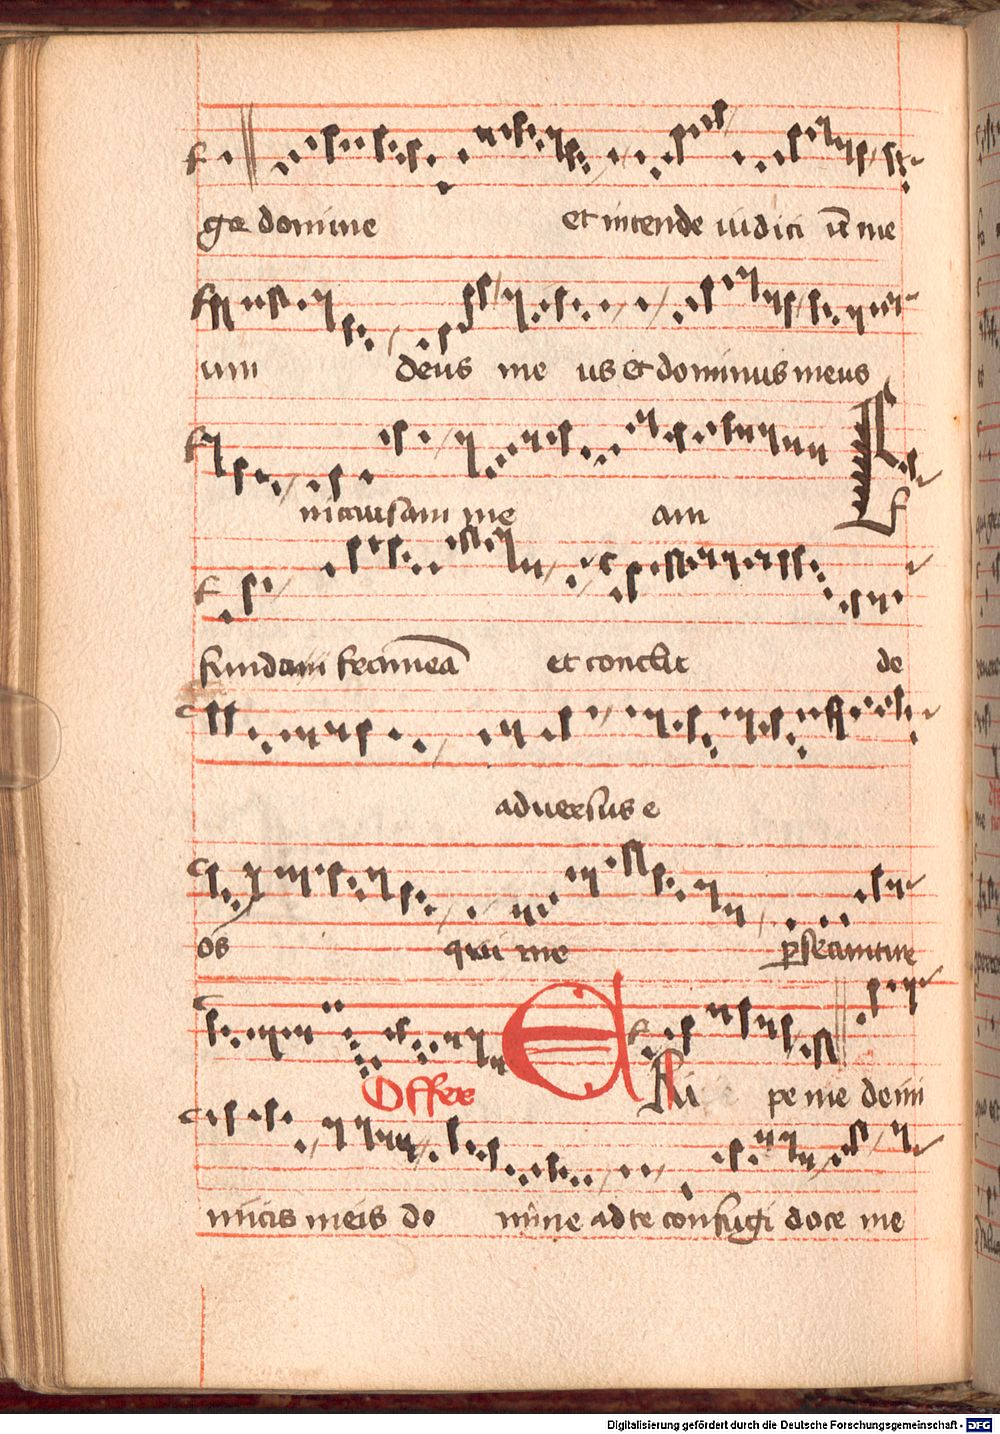 ge domine et intende iudici ū me
um deus me us et dominus meus
in causam me am E
ffunda m frameā et conclude de
adversus e
os qui me persecuntur
Offer E Ri pe me de ini
micis meis do mine ad te confugi doce me
Digitalisierung gefördert durch die Deutsche Forschungsgemeinschaft - DFG